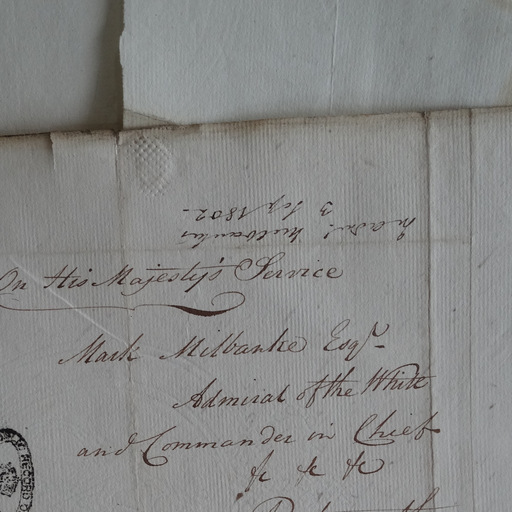 3 Sep 1802.
On His Majesty's Service
Mark Milbanke Esqr.
Admiral of the White
and Commander in Chief
&c &c &c